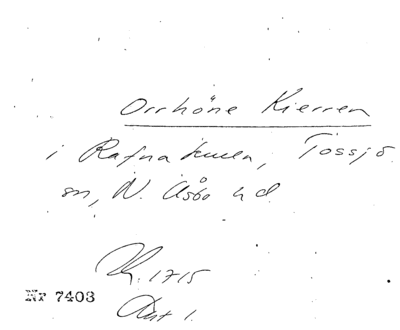 Orrhöne Kierren
i Rafna kullen, Tossjö
sn, N. Åsbo hd
Nr 7403